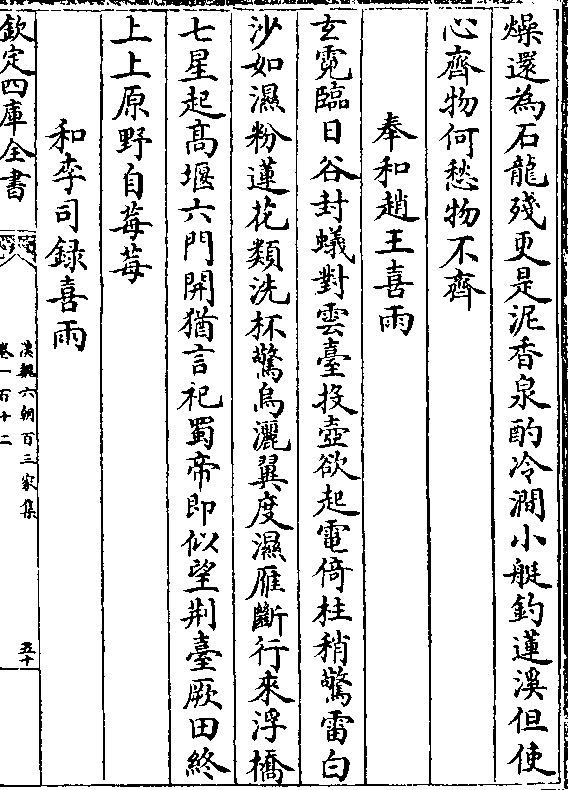 燥還為石龍殘更是泥香泉酌冷澗小艇釣蓮溪但使
心齊物何愁物不齊
奉和趙王喜雨
玄霓臨日谷封蟻對雲臺投壺欲起電倚柱稍驚雷白
沙如濕粉蓮花類洗杯驚烏灑翼度濕雁斷行來浮橋
七星起髙堰六門開猶言祀蜀帝即似望荆臺厥田終
上上原野自莓莓
和李司録喜雨
欽定四庫全書
漢魏六朝百三家集
卷一百十二
五十